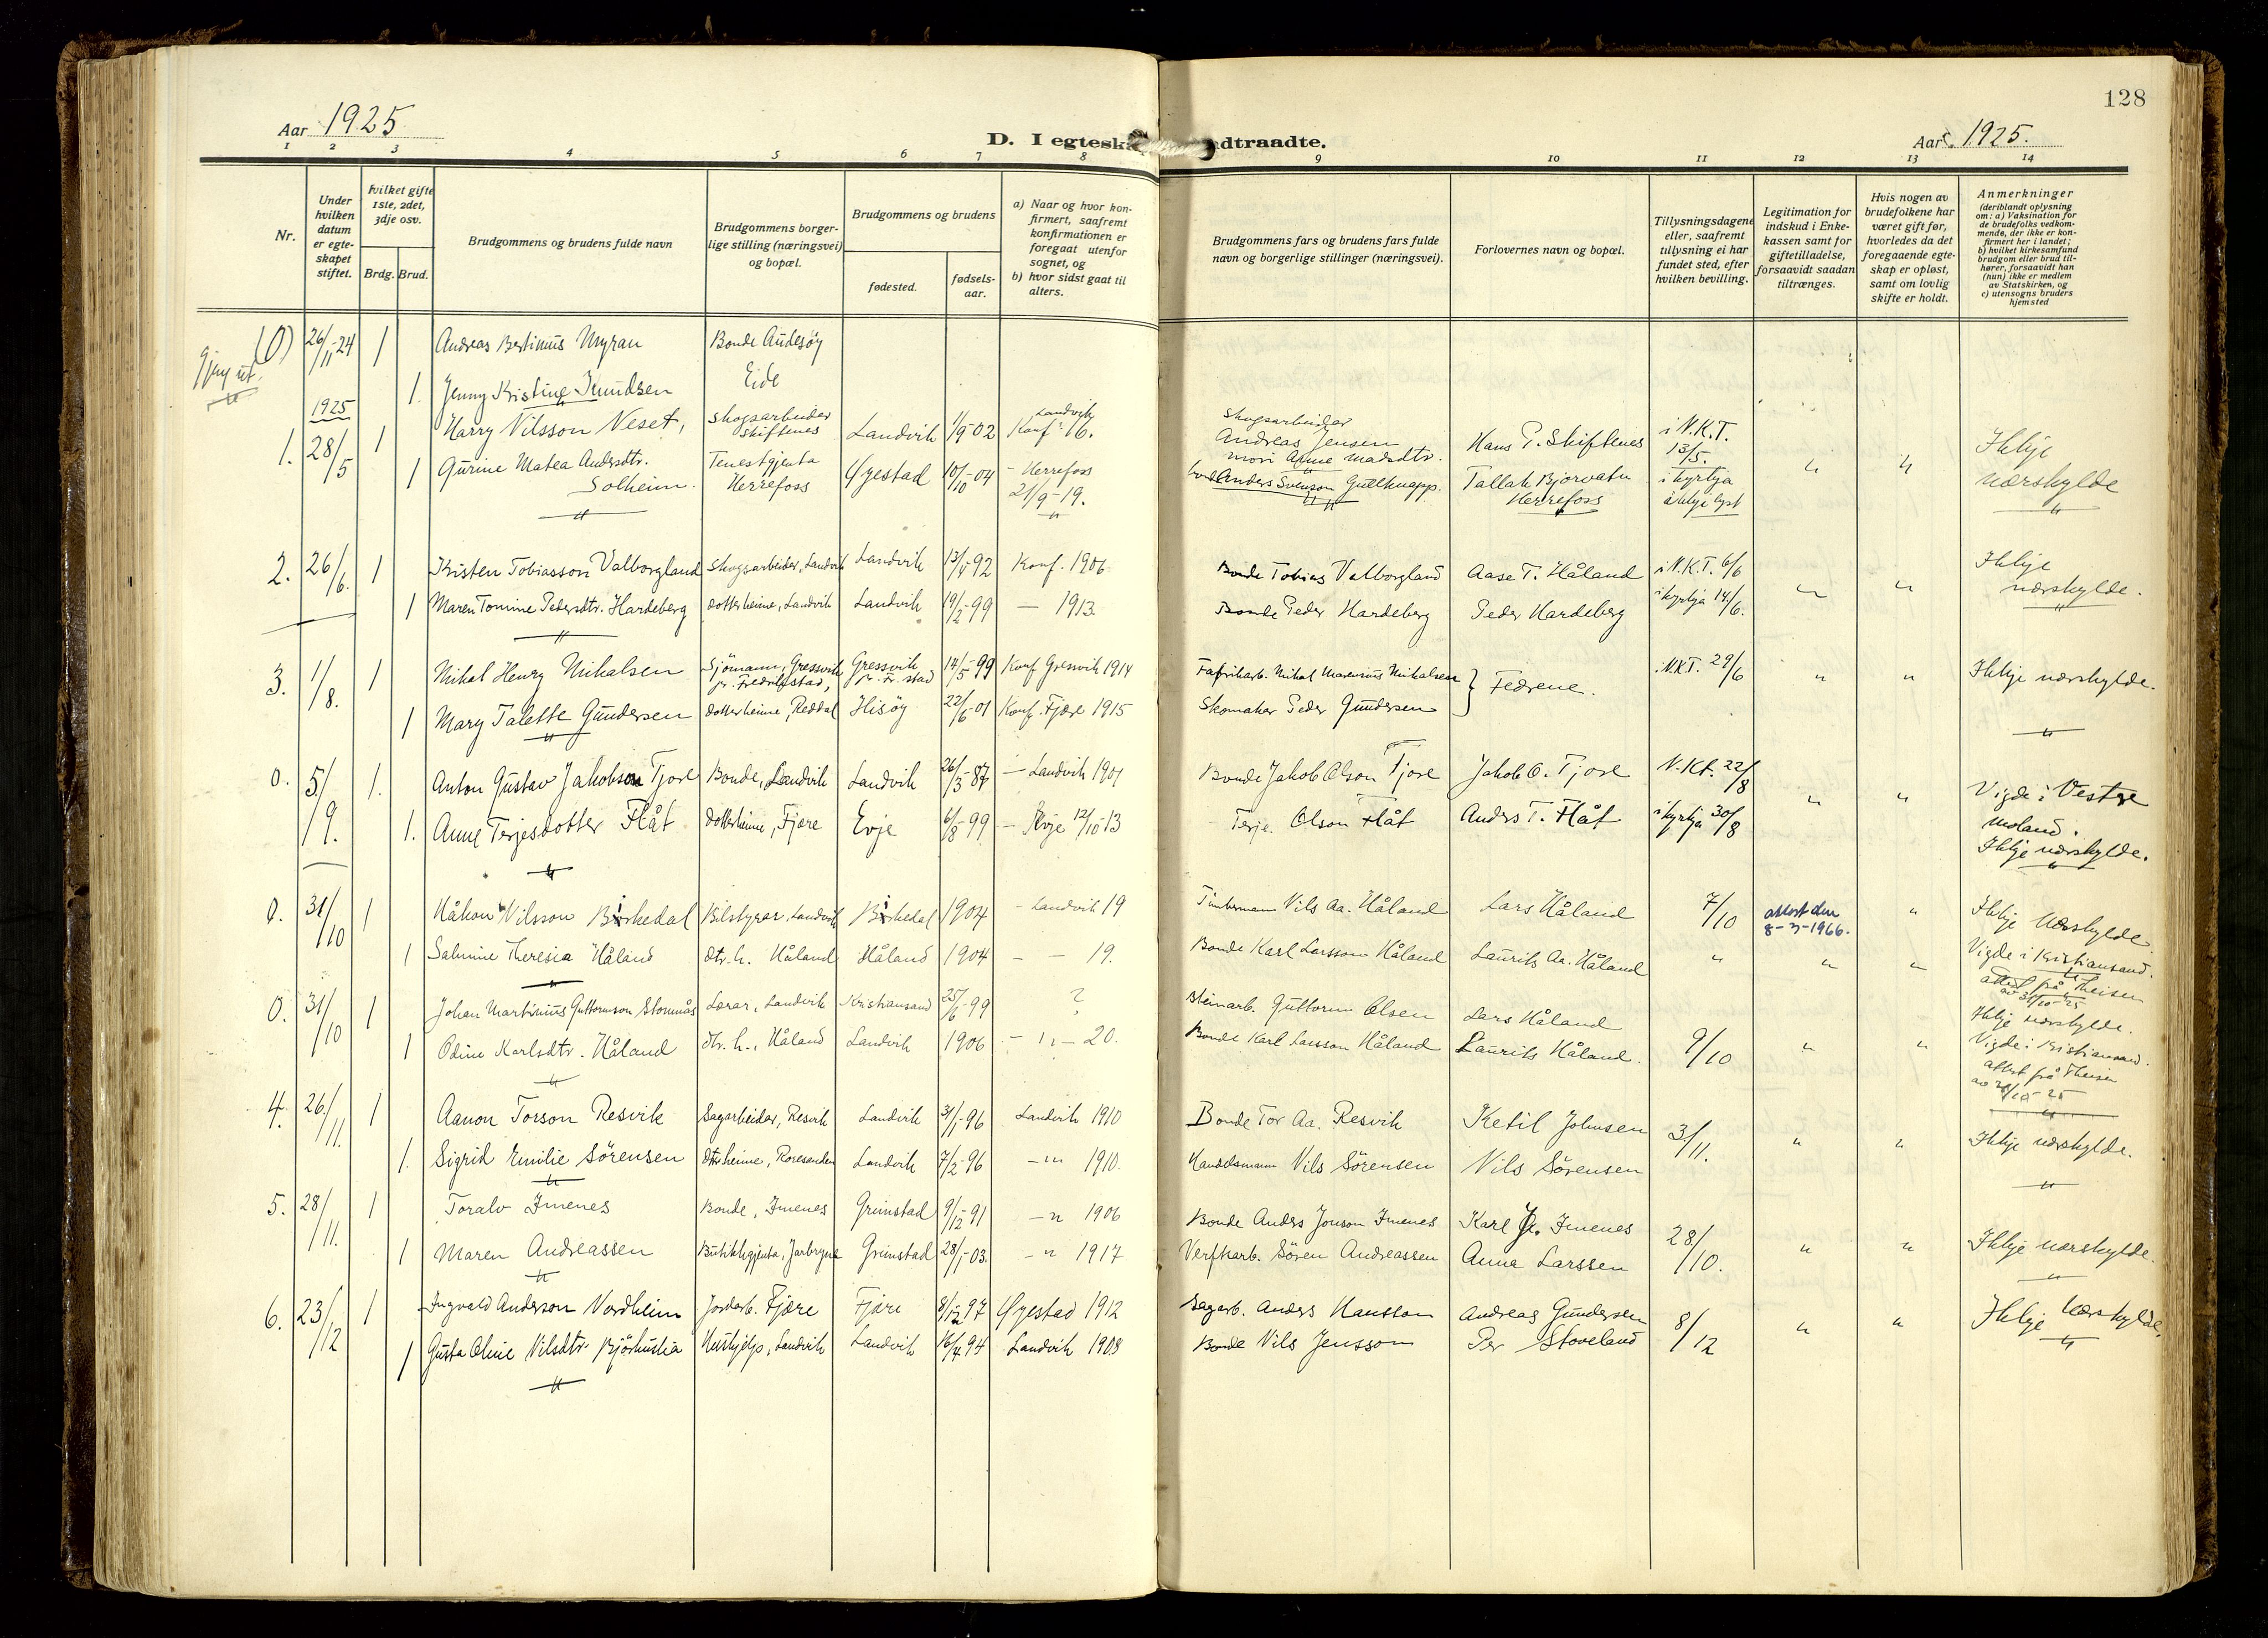 128
Aar 1925
D. I egteska
ndtraadte.
Aar 1925.
1 2 3 4 5 6 7 8 9 10 11 12 13 14
Nr.
Under hvilken datum er egteskapet stiftet.
hvilket gifte 1ste, 2det, 3dje osv.
Brdg. Brud.
Brudgommens og brudens fulde navn
Brudgommens borgerlige stilling (næringsvei) og bopæl.
Brudgommens og brudens
fødested.
fødsels-aar.
a) Naar og hvor konfirmert, saafremt konfirmationen er foregaat utenfor sognet, og
b) hvor sidst gaat til alters.
Brudgommens fars og brudens fars fulde navn og borgerlige stillinger (næringsvei).
Forlovernes navn og bopæl.
Tillysningsdagene eller, saafremt tillysning ei har fundet sted, efter hvilken bevilling.
Legitimation for indskud i Enkekassen samt for giftetilladelse, forsaavidt saadan tiltrænges.
Hvis nogen av brudefolkene har været gift før, hvorledes da det foregaaende egteskap er opløst, samt om lovlig skifte er holdt.
Anmerkninger
(deriblandt oplysning om: a) Vaksination for de brudefolks vedkommende, der ikke er konfirmert her i landet;
b) hvilket kirkesamfund brudgom eller brud tilhører, forsaavidt han (hun) ikke er medlem av Statskirken, og
c) utensogns bruders hjemsted
(0) 26/11-24 1 Andreas Bertinius Myran Bonde Audesøy
1. Jenny Kristine Knudsen Eide
1925
1. 28/5 1 Harry Nilsson Neset, Skogsarbeider Skiftenes Landvik 1/9-02 Landvik Konf. 16. Skogsarbeider Andreas Jensen Hans P. Skiftenes i N.K.T. 13/5. " " Ikkje nærskylde
1 Gurine Matea Andersdtr. Solheim. Tenestgjenta Herrefoss Øyestad 10/10-04 - Herrefoss 21/9-19. mor: Anne Madsdtr. Anders Svenson Gullknapp. Tallak Bjorvatn Herrefoss i kyrkja
2. 26/6. 1 Kristen Tobiasson Valborgland Skogsarbeider, Landvik Landvik 13/4-92 Konf. 1906 Bonde Tobias Valborgland Aase T. Håland i N.K.T. 6/6 " " Ikkje nærskylde.
1 Maren Tomine Pedersdtr. Hardeberg dotter heime, Landvik Landvik 19/2-99 — 1913. Bonde Peder Hardeberg Peder Hardeberg i kyrkja 14/6.
3. 1/8. 1 Mikal Henry Mikalsen Sjømann, Gressvik pr. Fredrikstad, Gressvik pr. Fr.stad 14/5-99 Konf Gressvik 1914 Fabrikarb. Mikal Marenius Mikalsen } Fedrene. i N.K.T. 29/6 " " Ikkje nærskylde.
1 Mary Talette Gundersen dotter heime, Reddal Hisøy 22/6-01 Konf. Fjære 1915 Skomaker Peder Gundersen
0. 5/9. 1. Anton Gustav Jakobson Tjore Bonde, Landvik Landvik 26/3-87 — Landvik 1901 Bonde Jakob Olson Tjore Jakob O. Tjore N.Kt. 22/8 " " Vigde i Vestre Moland.
1. Anne Terjesdotter Flåt dotter heime, Fjære Evje 6/8-99 — Evje 12/10-13 Terje Olson Flåt Anders T. Flåt i kyrkja 30/8 Ikkje nærskylde.
0. 31/10 1 Håkon Nilsson Birkedal Bilstyrar, Landvik Birkedal 1904 - Landvik 19 Timbermann Nils Aa. Håland Lars Håland 7/10 attest den 8-3-1966. " Ikkje Nærskylde.
1 Salmine Theresia Håland dtr. h. Håland Håland 1904 - - 19. Bonde Karl Larsson Håland Laurits Aa. Håland " " Vigde i Kristiansand.
attest frå Theisen av 31/10-25
0. 31/10 1 Johan Martinius Guttormson Stomnås Lærar, Landvik Kristiansand 25/6-99 ? Steinarb. Guttorm Olsen Lars Håland 9/10 " " Ikkje nærskylde.
1 Odine Karlsdtr. Håland dtr. h., Håland Landvik 1906 - " - 20. Bonde Karl Larsson Håland Laurits Håland. Vigde i Kristiansand. attest frå Theisen
4. 26/11. 1 Aanon Torson Resvik Sagarbeider, Resvik Landvik 31/1-96 Landvik 1910 Bonde Tor Aa. Resvik Ketil Johnsen 3/11. " " Ikkje nærskylde.
1. Sigrid Emilie Sörensen dtr heime, Roresanden Landvik 7/2-96 - " 1910. Handelsmann Nils Sörensen Nils Sörensen
5. 28/11. 1 Toralv Imenes Bonde, Imenes Grimstad 9/12-91 - " 1906 Bonde Anders Jonson Imenes Karl Imenes 28/10. " " Ikkje nærskylde.
1 Maren Andreassen Butikkgjenta, Jarbryne Grimstad 28/1-03. - " 1917 Verftsarb. Sören Andreassen Anna Larssen
6. 23/12 1 Ingvald Anderson Nordheim Jordarb. Fjære Fjære 8/12-97 Øyestad 1912 Sagarb. Anders Hansson Andreas Gundersen 8/12 " " Ikkje Nærskylde.
1 Gusta Oline Nilsdtr. Björkuslia Hushjelp, Landvik Landvik 16/4-94 Landvik 1908 Bonde Nils Jensson Per Stoveland